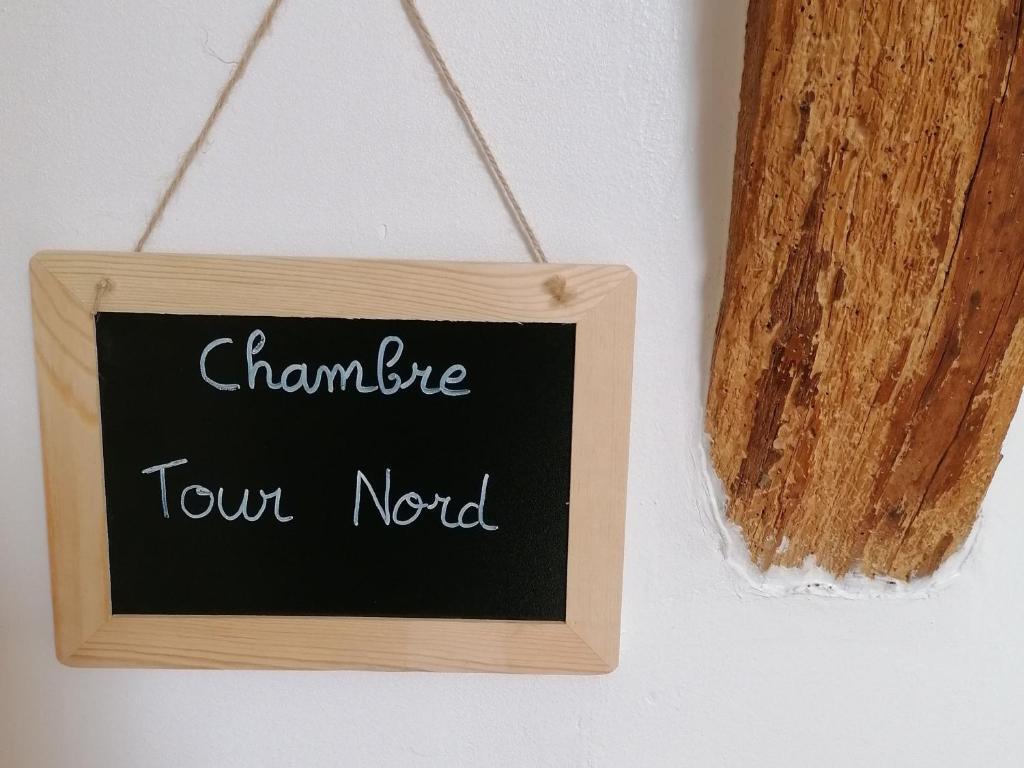 Chambre
Tour Nord